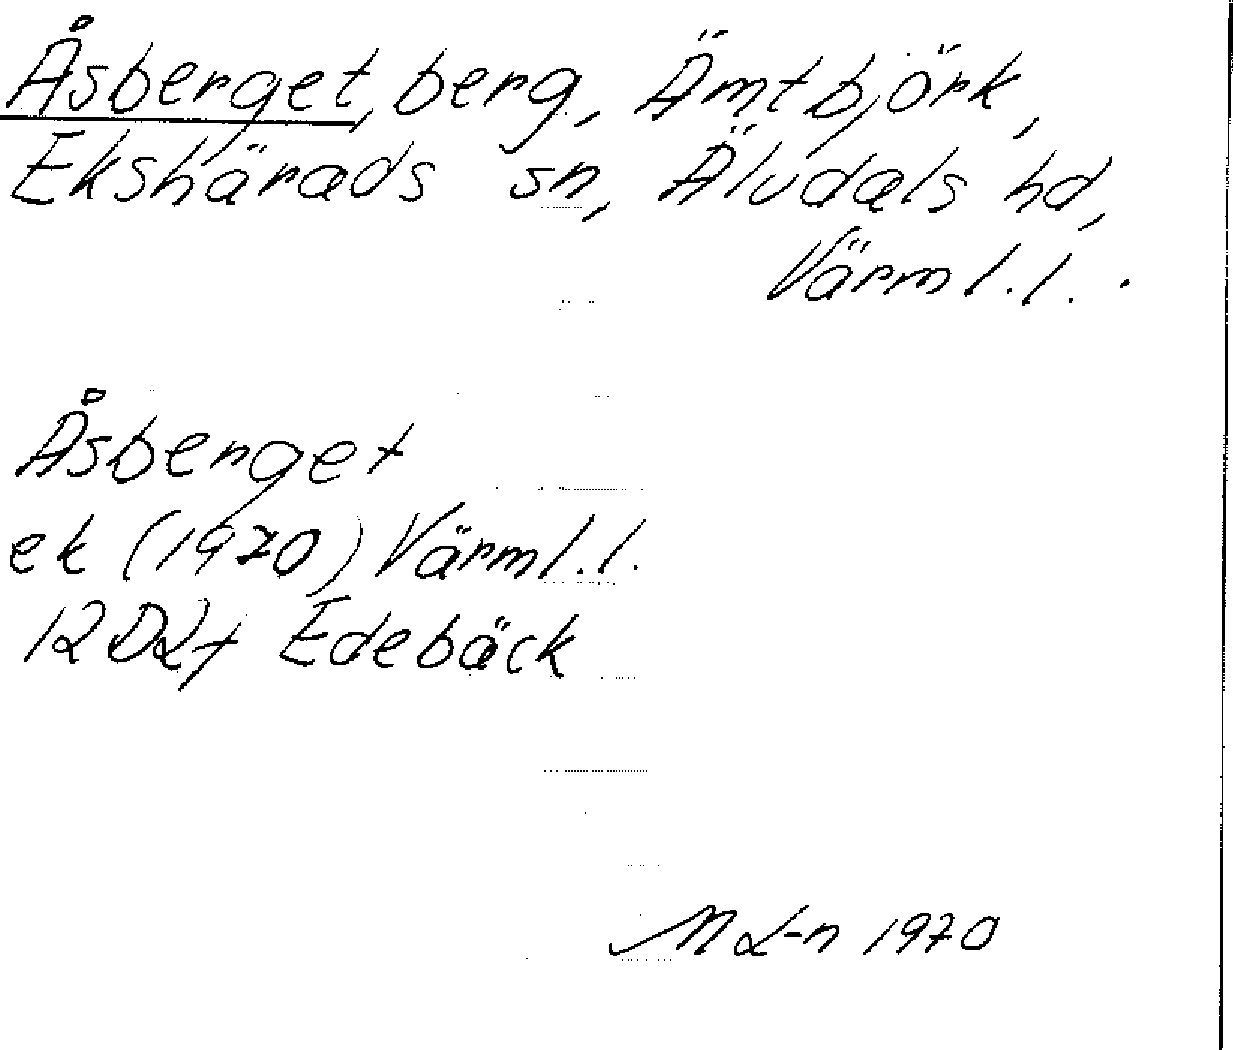 Åsberget, berg, Ämtbjörk,
Ekshärads sn, Älvdals hd,
Värml. l.
Åsberget
ek (1970) Värml. l.
Edebäck
1970